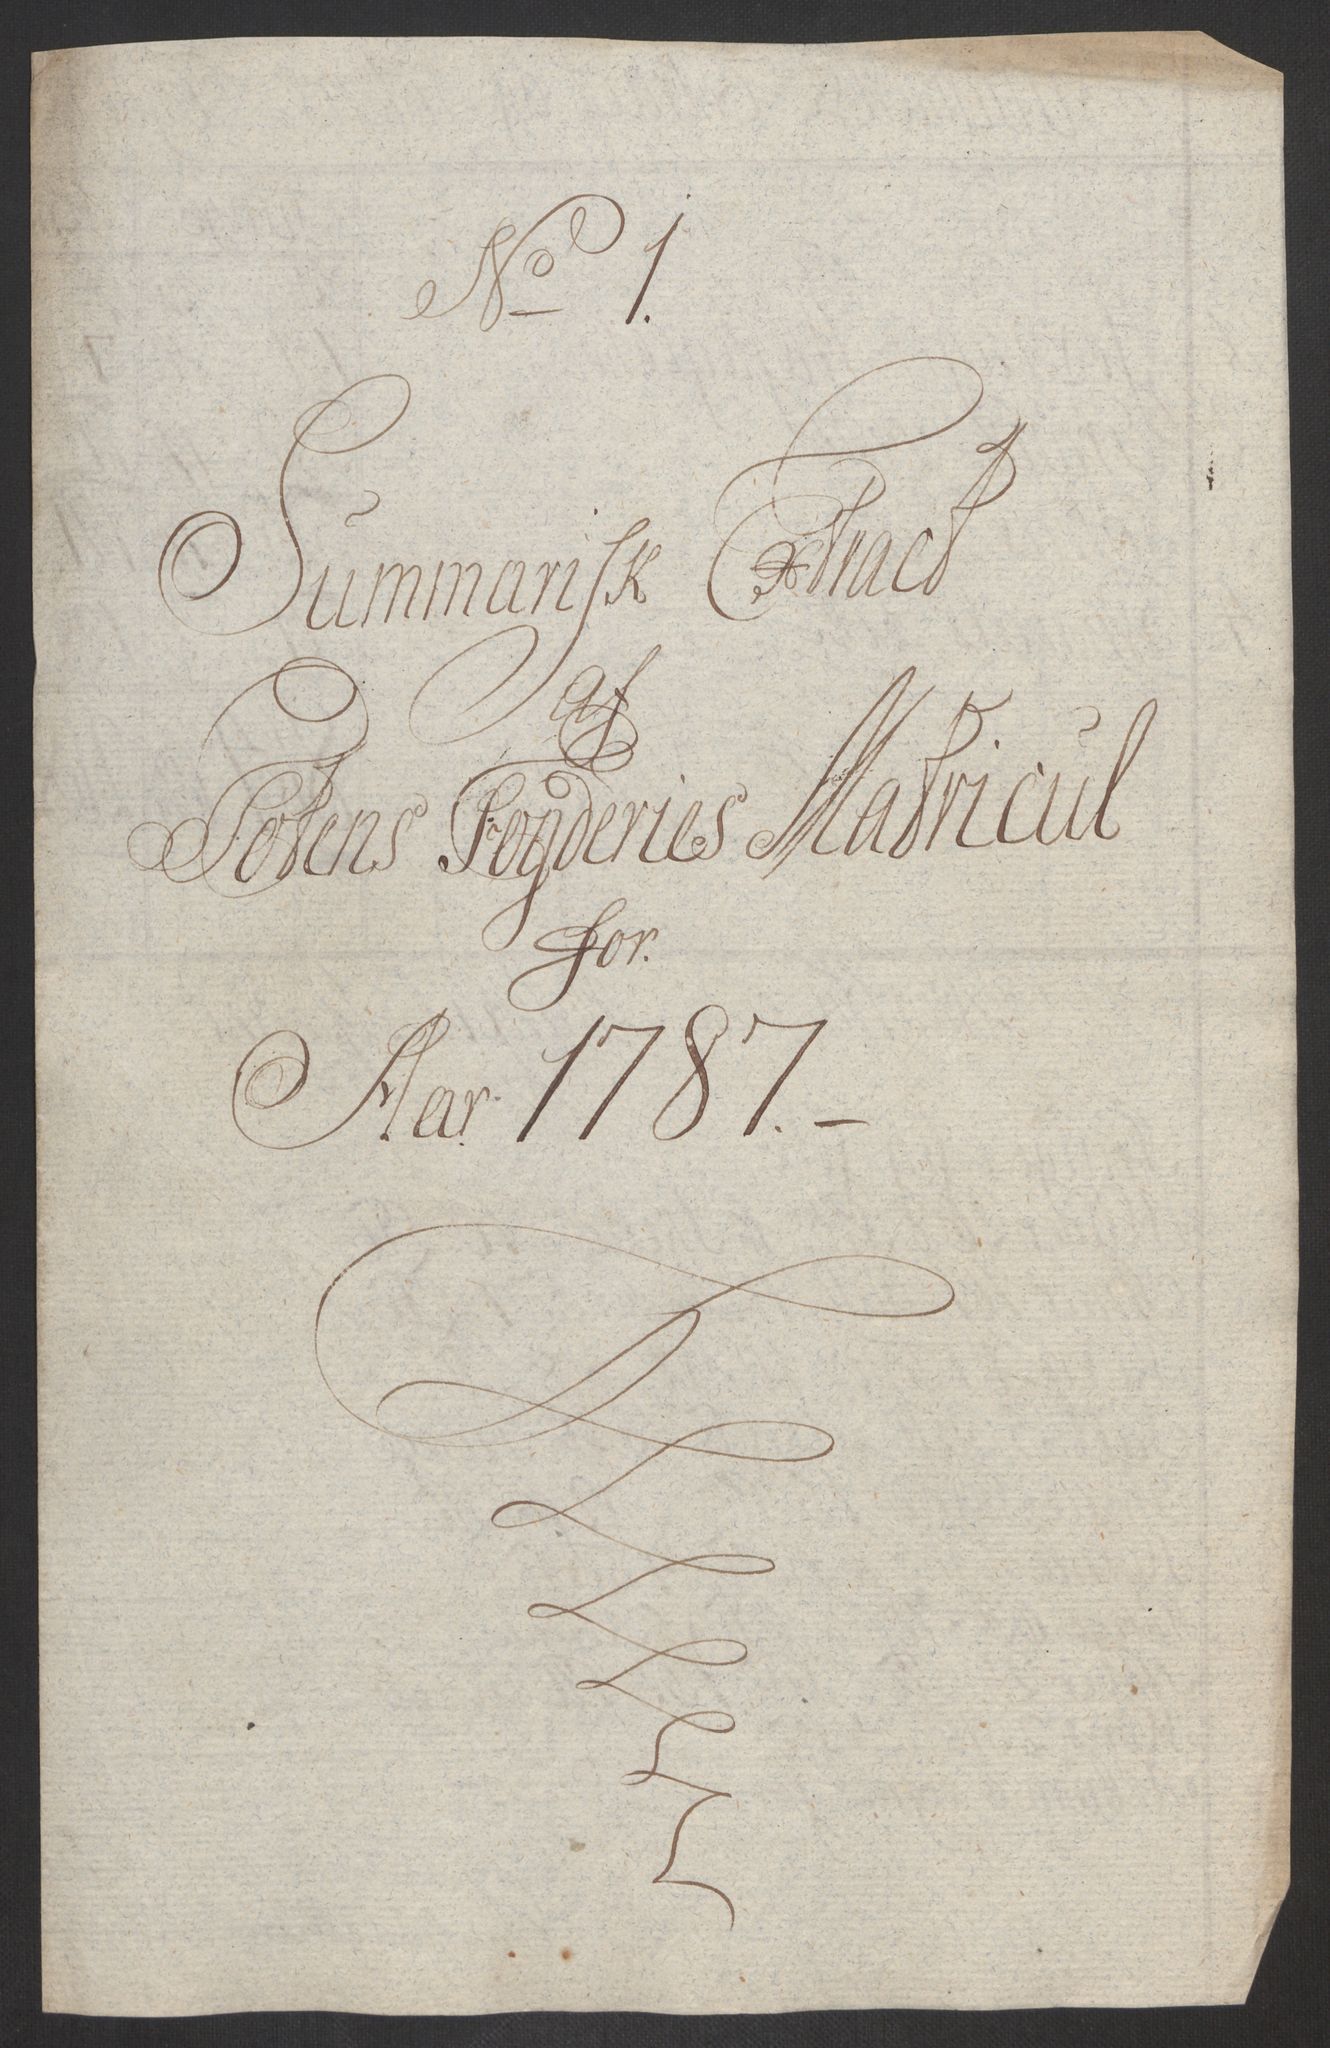 No 1.
Summarisk Extract
af
Totens Fogderies Matricul
for.
Aar 1787.-